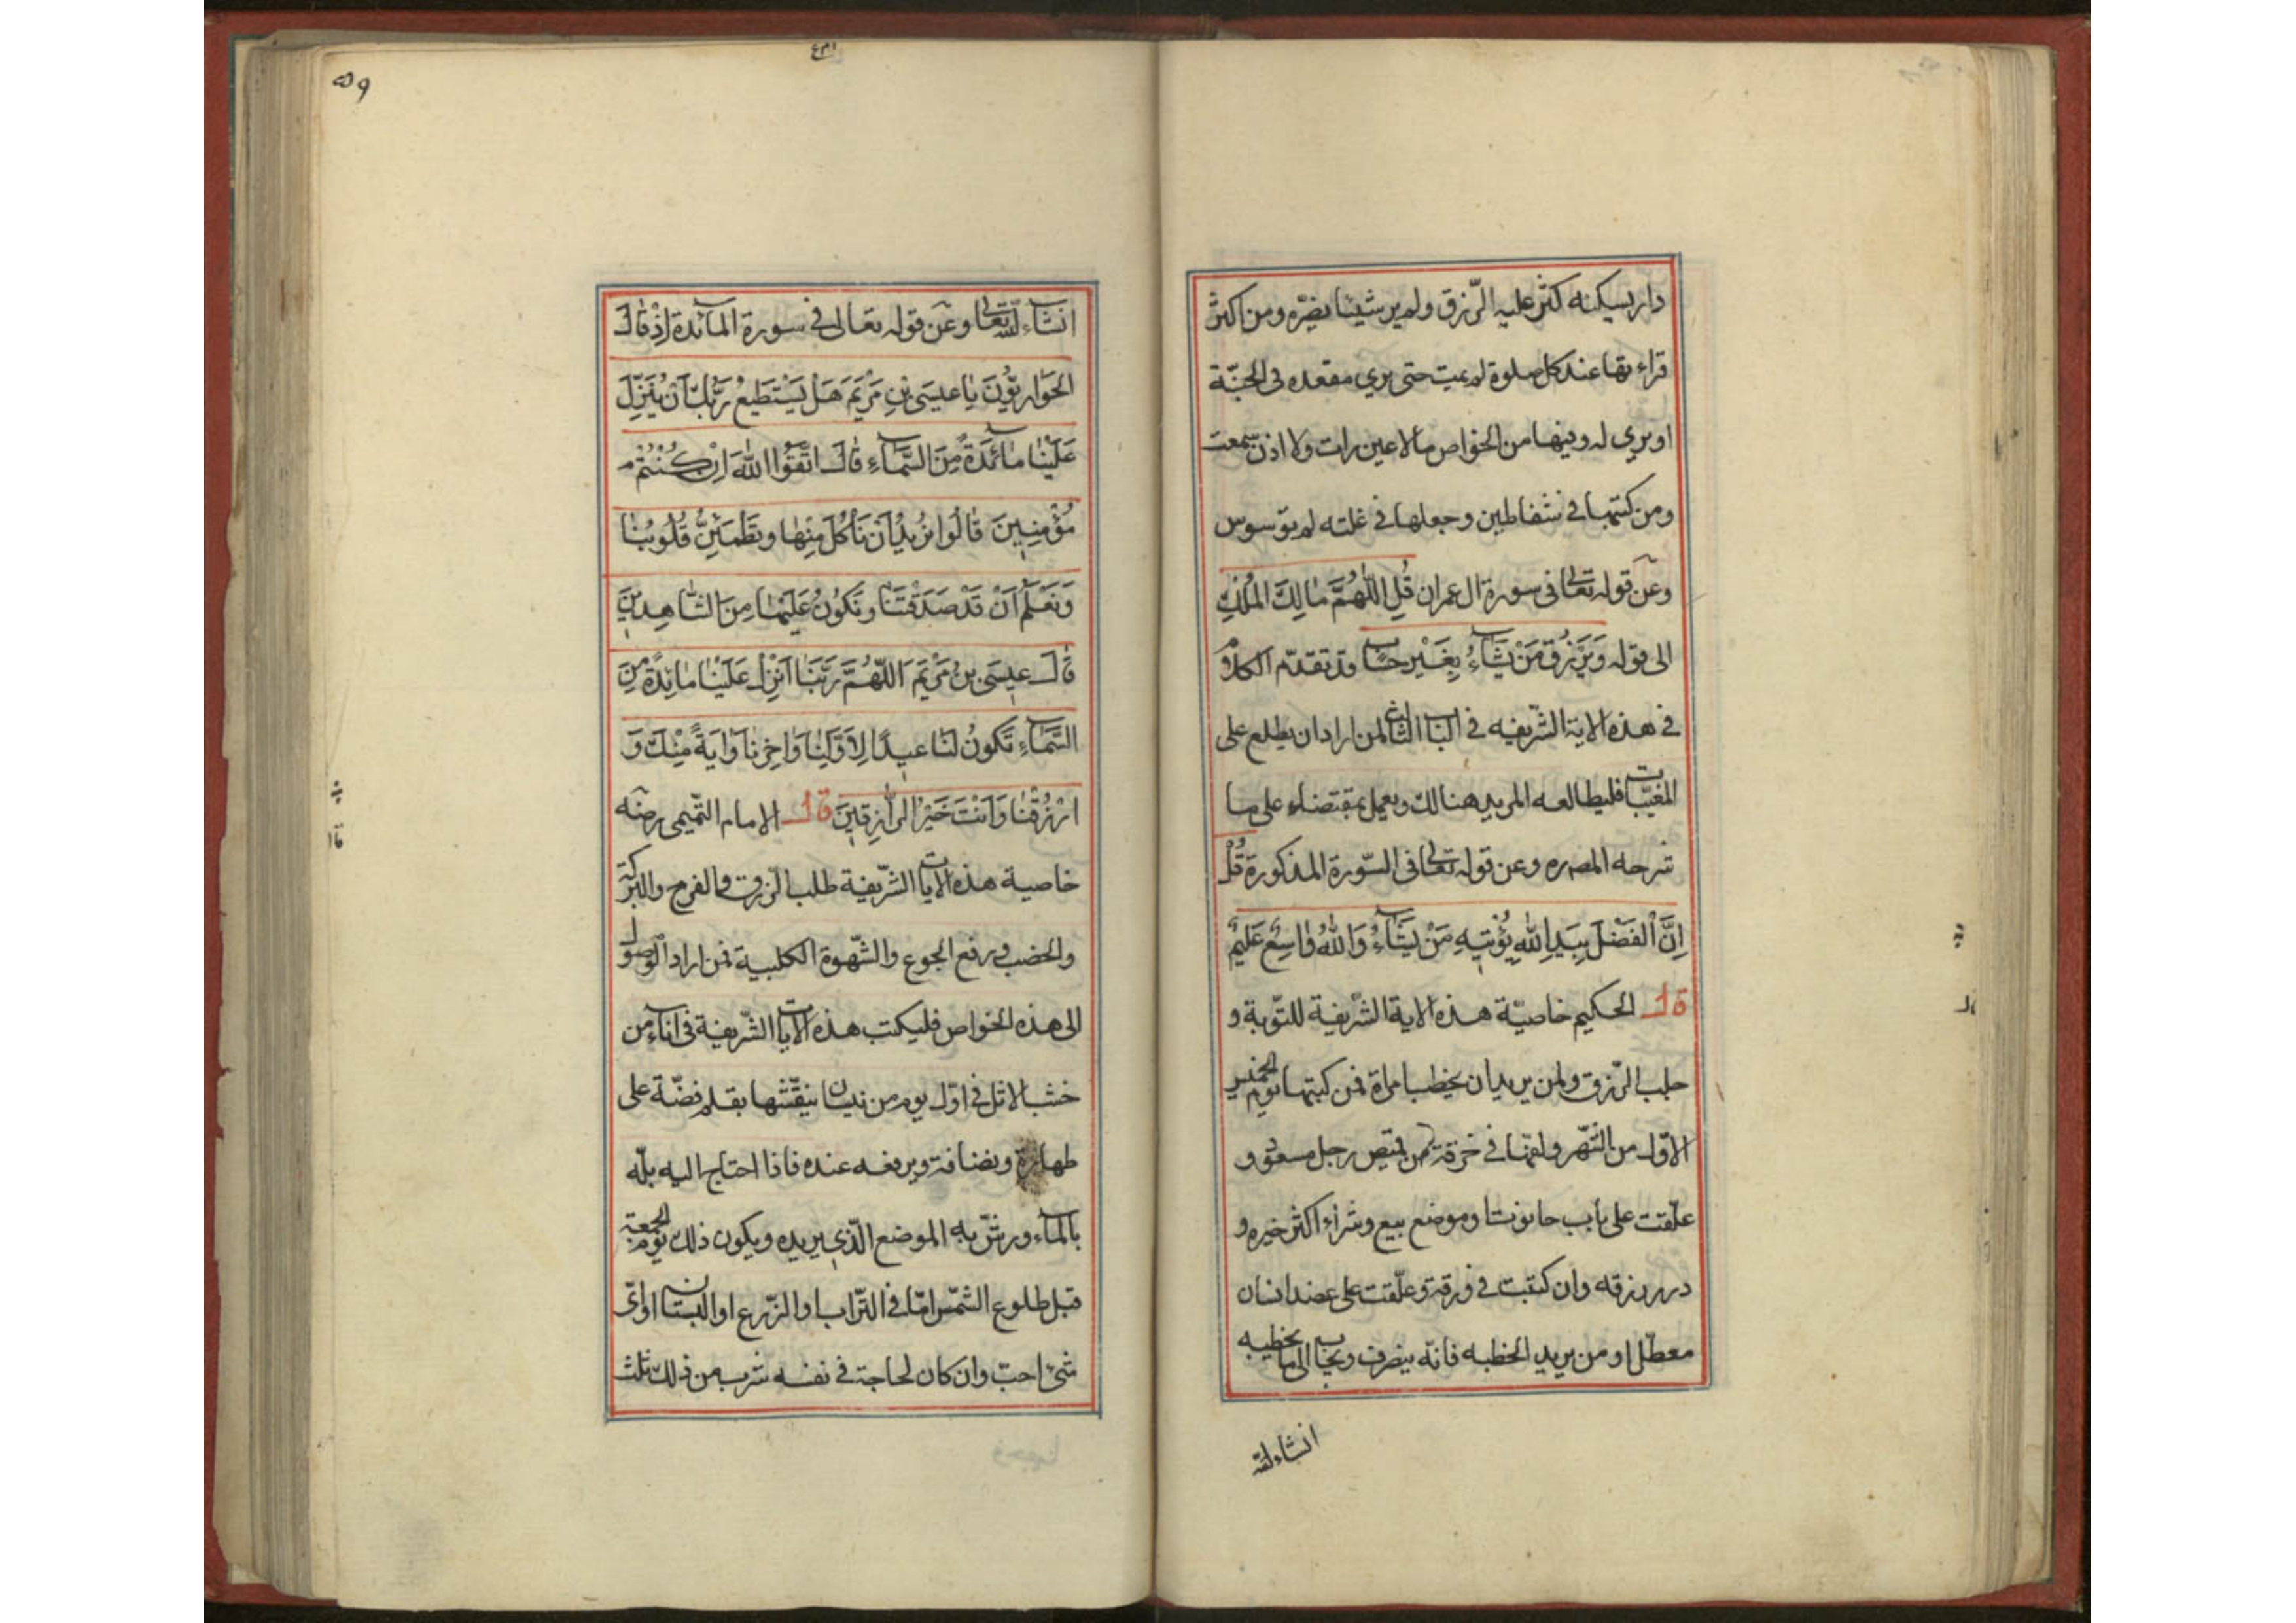 دار يسكنه كثر عليه الرّزق ولم ير شيئا يضرّه ومن اكثر
قراءتها عند كل صلوة لم يمت حتى يري مقعده فى الجنّة
او يري له وفيها من الخواص ما لا عين رات ولا اذن سمعت
ومن كتبها فى شفاطين وجعلها فى غلته لم يوّسوس
وعن قوله تعالى فى سورة ال عمران قُلِ اللّهُمَّ مَالِكَ المُلْكِ
الى قوله وَيَرْزُق مَنْ يَشَآءُ بِغَيْرِ حِسَاب قد تقدّم الكلام
فى هذه الاية الشّريفه فى الباب لمن اراد ان يطلع على
المغيّبات فليطالعه المريد هنالك ويعمل بمقتضاء على ما
شرحه وعن قوله تعالى فى السّورة المذكورة قُلْ
اِنَّ الفَضْلَ بِيَدِ اللهِ يُؤْتِيهِ مَنْ يَشَآءُ وَاللهُ وَاسِعٌ عَلِيمٌ
قال الحكيم خاصيّة هذه الاية الشّريفية للتّوبة و
جلب الرّزق ولمن يريد ان يخطب امراة فمن كتبها يوم الخميس
الاوّل من الشّهر ولفّها فى خرقة من قميص رجل و
علّقت على باب حانوت او موضع بيع وشرآء اكثر خيره و
درر رزقه وان كتبت فى ورقة وعلّقت على عضد انسان
معطّل او من يريد الخطبه فانّه ينصرف ويجاب الى ما يخطبه
انشاء الله
٥٩
انشآء الله تعالى وعن قوله تعالى فى سورة المآئدة اِذْ قَالَ
الحَوَارِيُّونَ يَا عيسَى بْنِ مَرْيَمَ هَلْ يَسْتَطيعُ رَبُّكَ اَنْ يُنَزِّلَ
عَلَيْنَا مَآئِدَةً مِنَ السَّمَآءِ قَالَ اتَّقُوا اللهَ اِنْ كُنْتُمْ
مُؤْمِنِينَ قَالُوا نُرِيدُ اَنْ نَأكُلَ مِنْهَا وتَطْمَئِنَّ قُلُوبُنَا
وَنَعْلَمَ اَنْ قَدْ صَدَقْتَنَا وَنَكُونُ عَلَيْهَا مِنَ الشَّاهِدِينَ
قَالَ عِيسَى بنُ مَرْيَمَ اَللّهُمَّ رَبَّنَا اَنْزِلْ عَلَيْنَا مَائِدَةً مِنَ
السَّمَآءِ تَكُونُ لَنَا عيدًا لِاَوَّلِنَا وَاخِرِنَا وَايَةً مِنْكَ وَ
ارْزُقْنَا وَاَنْتَ خَيْرُ الرَّازِقِينَ قال الامام التّميمى رضّه
خاصية هذه الايات الشّريفية طلب الرّزق والفرج والبركة
والخصب ورفع الجوع والشّهوة الكلبية فمن اراد الوصول
الى هذه الخواص فليكتب هذه الايات الشّريفية فى انآء من
خشب الاثل فى اوّل يوم من نيسان ينقّشها بقلم فضّة على
طهارة ونضافة ويرفعه عنده فاذا احتاج اليه بلّه
بالمآء ورشّ به الموضع الّذى يريده ويكون ذلك يوم الجمعة
قبل طلوع الشّمس امّا فى التّراب او الزّرع او البستان او اىّ
شىء احبّ وان كان لحاجة فى نفسه شرب من ذلك ثلث